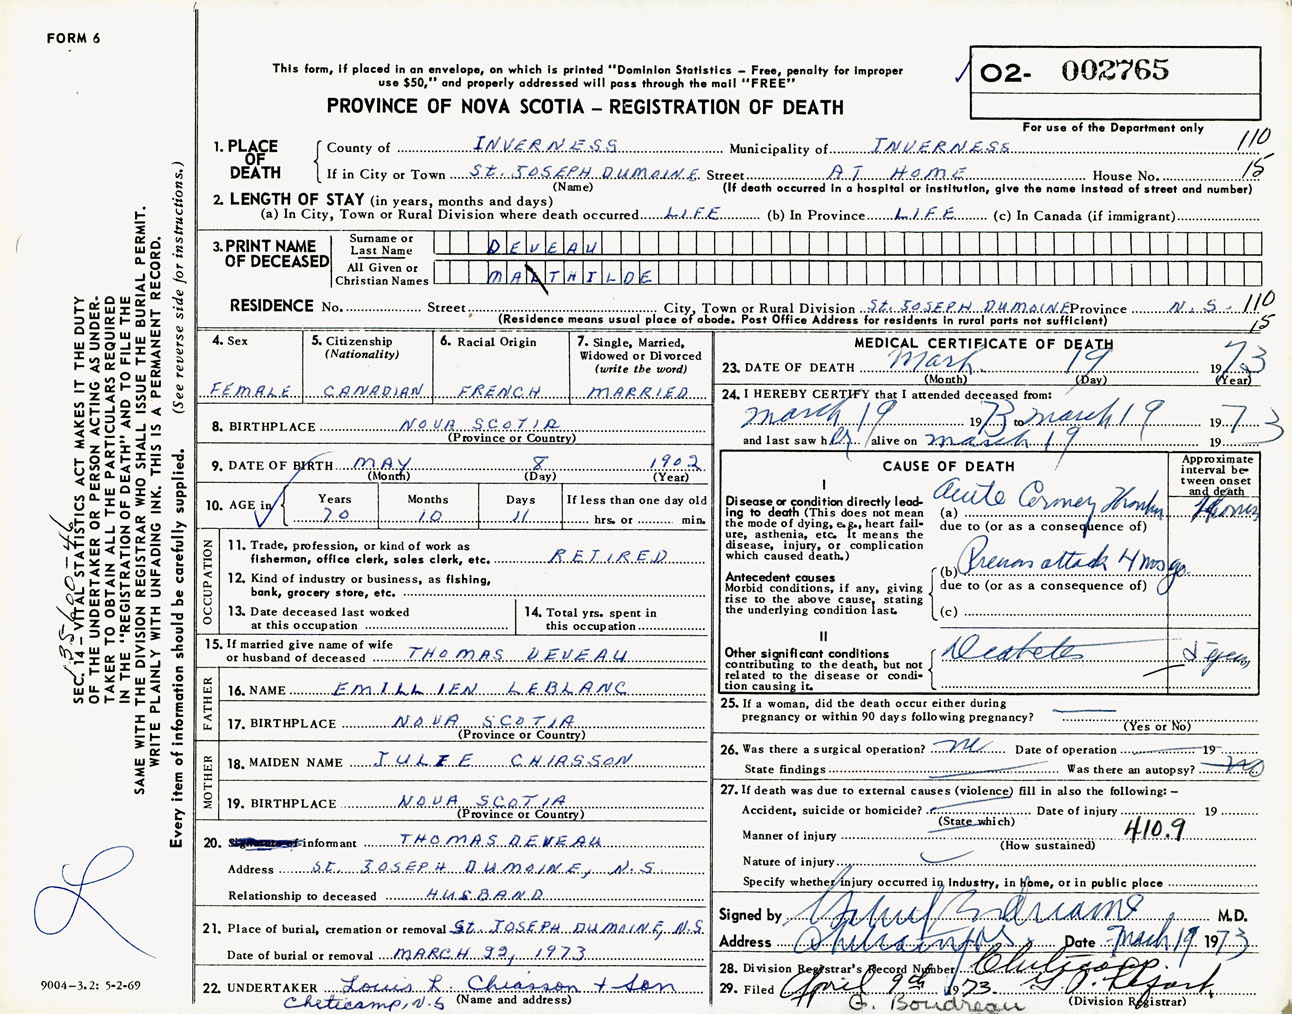 FORM 6
This form, if placed in an envelope, on which is printed "Dominion Statistics – Free, penalty for improper
use $50," and properly addressed will pass through the mail "FREE"
PROVINCE OF NOVA SCOTIA – REGISTRATION OF DEATH
O2- 002765
For use of the Department only
110
15
1. PLACE OF DEATH
County of INVERNESS Municipality of INVERNESS
If in City or Town St. JOSEPH DUMOINE Street AT HOME House No.
(Name) (If death occurred in a hospital or institution, give the name instead of street and number)
2. LENGTH OF STAY (in years, months and days)
(a) In City, Town or Rural Division where death occurred LIFE (b) In Province LIFE (c) In Canada (if immigrant)
3. PRINT NAME OF DECEASED
Surname or Last Name DEVEAU
All Given or Christian Names MALTHILDE
RESIDENCE No. Street City, Town or Rural Division St. JOSEPH DUMOINE Province N.S. 110
(Residence means usual place of abode. Post Office Address for residents in rural parts not sufficient) 15
4. Sex
FEMALE
5. Citizenship
(Nationality)
CANADIAN
6. Racial Origin
FRENCH
7. Single, Married,
Widowed or Divorced
(write the word)
MARRIED
8. BIRTHPLACE NOVA SCOTIA
(Province or Country)
9. DATE OF BIRTH MAY 8 1902
(Month) (Day) (Year)
10. AGE in
Years Months Days If less than one day old
70 10 11 hrs. or min.
OCCUPATION
11. Trade, profession, or kind of work as
fisherman, office clerk, sales clerk, etc. RETIRED
12. Kind of industry or business, as fishing,
bank, grocery store, etc.
13. Date deceased last worked
at this occupation
14. Total yrs. spent in
this occupation
15. If married give name of wife
or husband of deceased THOMAS DEVEAU
FATHER
16. NAME EMILLIEN LEBLANC
17. BIRTHPLACE NOVA SCOTIA
(Province or Country)
MOTHER
18. MAIDEN NAME JULIE CHIASSON
19. BIRTHPLACE NOVA SCOTIA
(Province or Country)
20. Signature of informant THOMAS DEVEAU
Address ST. JOSEPH DUMOINE, N.S.
Relationship to deceased HUSBAND
21. Place of burial, cremation or removal St. JOSEPH DUMOINE, N.S.
Date of burial or removal MARCH 22, 1973
22. UNDERTAKER Louis L. Chiasson + Son
Cheticamp, N.S (Name and address)
MEDICAL CERTIFICATE OF DEATH
23. DATE OF DEATH March 19 1973
(Month) (Day) (Year)
24. I HEREBY CERTIFY that I attended deceased from:
march 19 1973 to march 19 1973
and last saw her alive on march 19 19
CAUSE OF DEATH
Approximate
interval be-
tween onset
and death
I
Disease or condition directly lead-
ing to death (This does not mean
the mode of dying, e.g., heart fail-
ure, asthenia, etc. It means the
disease, injury, or complication
which caused death.)
(a) Acute
due to (or as a consequence of)
Antecedent causes
Morbid conditions, if any, giving
rise to the above cause, stating
the underlying condition last.
(b) attack 4 mos ago
due to (or as a consequence of)
(c)
II
Other significant conditions
contributing to the death, but not
related to the disease or condi-
tion causing it.
Diabetes years
25. If a woman, did the death occur either during
pregnancy or within 90 days following pregnancy?
(Yes or No)
26. Was there a surgical operation? no Date of operation 19
State findings Was there an autopsy? no
27. If death was due to external causes (violence) fill in also the following: –
Accident, suicide or homicide? Date of injury 19
(State which)
Manner of injury 410.9
(How sustained)
Nature of injury
Specify whether injury occurred in Industry, in home, or in public place
Signed by M.D.
Address Date March 19 1973
28. Division Registrar's Record Number
29. Filed April 9th 1973.
G. Boudreau (Division Registrar)
SEC. 14 – VITAL STATISTICS ACT MAKES IT THE DUTY
OF THE UNDERTAKER OR PERSON ACTING AS UNDER-
TAKER TO OBTAIN ALL THE PARTICULARS REQUIRED
IN THE "REGISTRATION OF DEATH" AND TO FILE THE
SAME WITH THE DIVISION REGISTRAR WHO SHALL ISSUE THE BURIAL PERMIT.
WRITE PLAINLY WITH UNFADING INK. THIS IS A PERMANENT RECORD.
Every item of information should be carefully supplied. (See reverse side for instructions.)
9004-3.2: 5-2-69